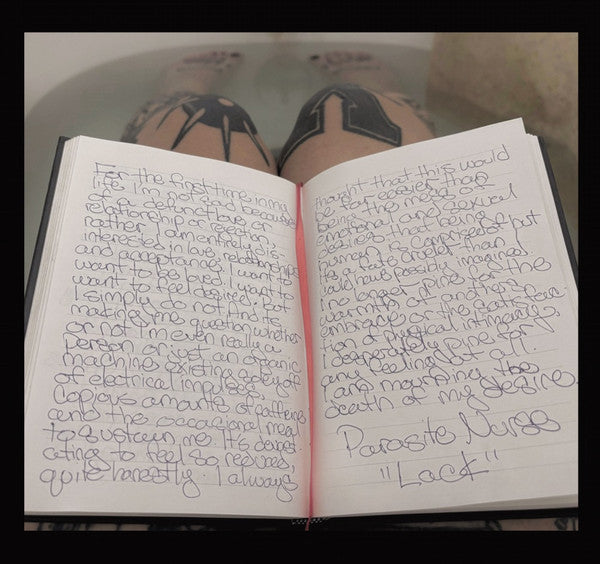 For the first time in my
life I'm not sad because
of a defunct love or
relationship or rejection,
rather I am entirely dis-
interested in love, relationships
and acceptance. I want to
want to be loved. I want to
want to feel desired. But
I simply do not and its
making me question whether
or not I'm even really a
person or just an organic
machine existing solely off
of electrical impulses,
copious amounts of caffeine
and the occasional meal
to sustain me. It's devast-
ating to feel so reduced,
quite honestly. I always
thought that this would
be far easier than
being the mess of
emotional and sexual
desires that being
human is comprised of but
its a fate crueler than
I could have possibly imagined.
I no longer pine for the
warmth of another's
embrace or the satisfac-
tion of physical intimacies,
I desperately pine for
any feeling at all.
I am mourning the
death of my desire.
Parasite Nurse
"Lack"